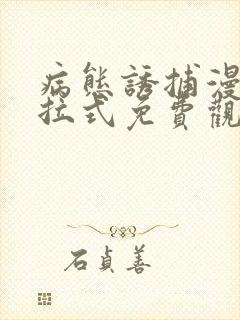 病態誘捕漫
拉式免費觀
石貞善